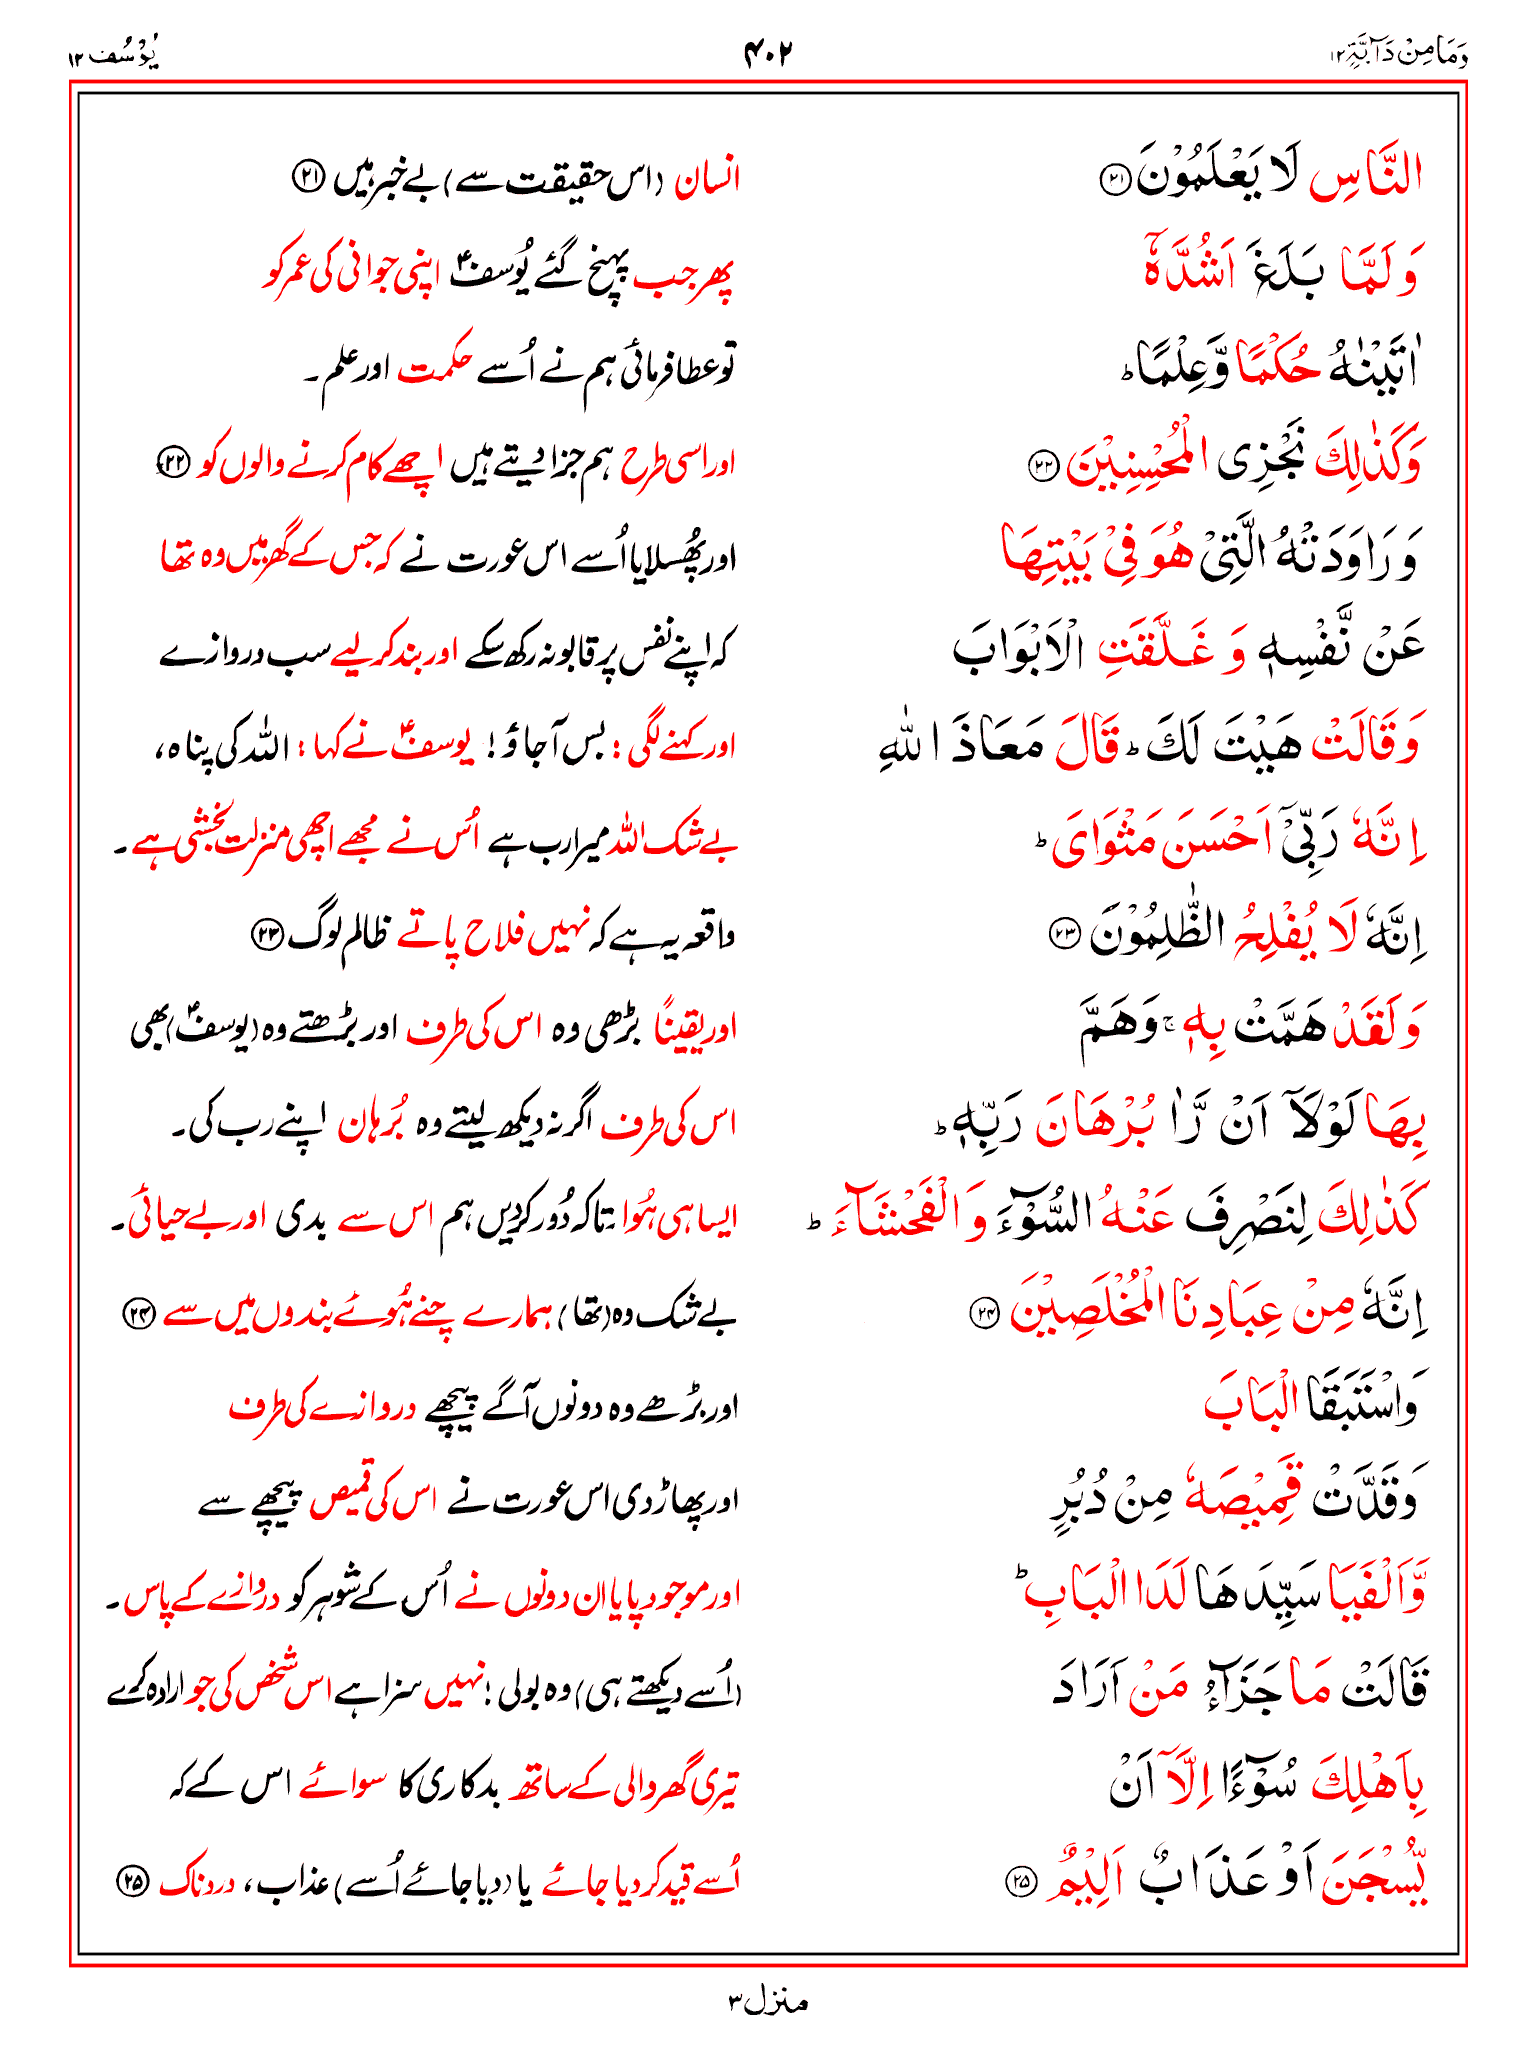 وَمَا مِنْ دَآبَّةٍ ۱۲
۴۰۲
يُوْسُف ۱۲
النَّاسِ لَا يَعْلَمُوْنَ ۲۱
انسان (اس حقیقت سے) بے خبر ہیں ۲۱
وَلَمَّا بَلَغَ اَشُدَّهٗٓ
پھر جب پہنچ گئے یُوسفؑ اپنی جوانی کی عمر کو
اٰتَيْنٰهُ حُكْمًا وَّعِلْمًا ؕ
تو عطا فرمائی ہم نے اُسے حکمت اور علم۔
وَكَذٰلِكَ نَجْزِى الْمُحْسِنِيْنَ ۲۲
اور اسی طرح ہم جزا دیتے ہیں اچھے کام کرنے والوں کو ۲۲
وَرَاوَدَتْهُ الَّتِىْ هُوَ فِىْ بَيْتِهَا
اور پُھسلایا اُسے اس عورت نے کہ جس کے گھر میں وہ تھا
عَنْ نَّفْسِهٖ وَ غَلَّقَتِ الْاَبْوَابَ
کہ اپنے نفس پر قابو نہ رکھ سکے اور بند کر لیے سب دروازے
وَقَالَتْ هَيْتَ لَكَ ؕ قَالَ مَعَاذَ اللّٰهِ
اور کہنے لگی: بس آجاؤ! یوسفؑ نے کہا: اللہ کی پناہ،
اِنَّهٗ رَبِّىْٓ اَحْسَنَ مَثْوَاىَ ؕ
بے شک اللہ میرا رب ہے اُس نے مجھے اچھی منزلت بخشی ہے۔
اِنَّهٗ لَا يُفْلِحُ الظّٰلِمُوْنَ ۲۳
واقعہ یہ ہے کہ نہیں فلاح پاتے ظالم لوگ ۲۳
وَلَقَدْ هَمَّتْ بِهٖ ۚ وَهَمَّ
اور یقیناً بڑھی وہ اس کی طرف اور بڑھتے وہ (یوسفؑ) بھی
بِهَا لَوْلَآ اَنْ رَّاٰ بُرْهَانَ رَبِّهٖ ؕ
اس کی طرف اگر نہ دیکھ لیتے وہ بُرہان اپنے رب کی۔
كَذٰلِكَ لِنَصْرِفَ عَنْهُ السُّوْٓءَ وَالْفَحْشَآءَ ؕ
ایسا ہی ہُوا تاکہ دُور کردیں ہم اس سے بدی اور بے حیائی۔
اِنَّهٗ مِنْ عِبَادِنَا الْمُخْلَصِيْنَ ۲۴
بے شک وہ (تھا) ہمارے چنے ہُوئے بندوں میں سے ۲۴
وَاسْتَبَقَا الْبَابَ
اور بڑھے وہ دونوں آگے پیچھے دروازے کی طرف
وَقَدَّتْ قَمِيْصَهٗ مِنْ دُبُرٍ
اور پھاڑ دی اس عورت نے اس کی قمیص پیچھے سے
وَّاَلْفَيَا سَيِّدَهَا لَدَا الْبَابِ ؕ
اور موجود پایا ان دونوں نے اُس کے شوہر کو دروازے کے پاس۔
قَالَتْ مَا جَزَآءُ مَنْ اَرَادَ
(اُسے دیکھتے ہی) وہ بولی: نہیں سزا ہے اس شخص کی جو ارادہ کرے
بِاَهْلِكَ سُوْٓءًا اِلَّآ اَنْ
تیری گھر والی کے ساتھ بدکاری کا سوائے اس کے کہ
يُّسْجَنَ اَوْ عَذَابٌ اَلِيْمٌ ۲۵
اُسے قید کردیا جائے یا (دیا جائے اُسے) عذاب، دردناک ۲۵
منزل ۳